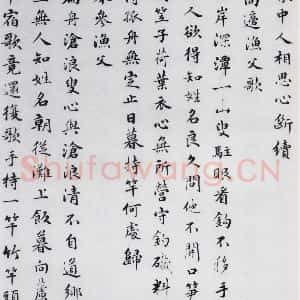 中人相思心斷續
高適漁父歌
岸深潭一山叟駐眼看鈎不移手
人欲得知姓名良久問他不開口筍
笠子荷葉衣心無所營守釣磯料
得孤舟無定止日暮持竿何處歸
岑參漁父
扁舟滄浪叟心與滄浪清不自道鄉
里無人知姓名朝從灘上飯暮向蘆
中宿歌竟還復歌手持一竿竹竿頭
Shufawang.CN